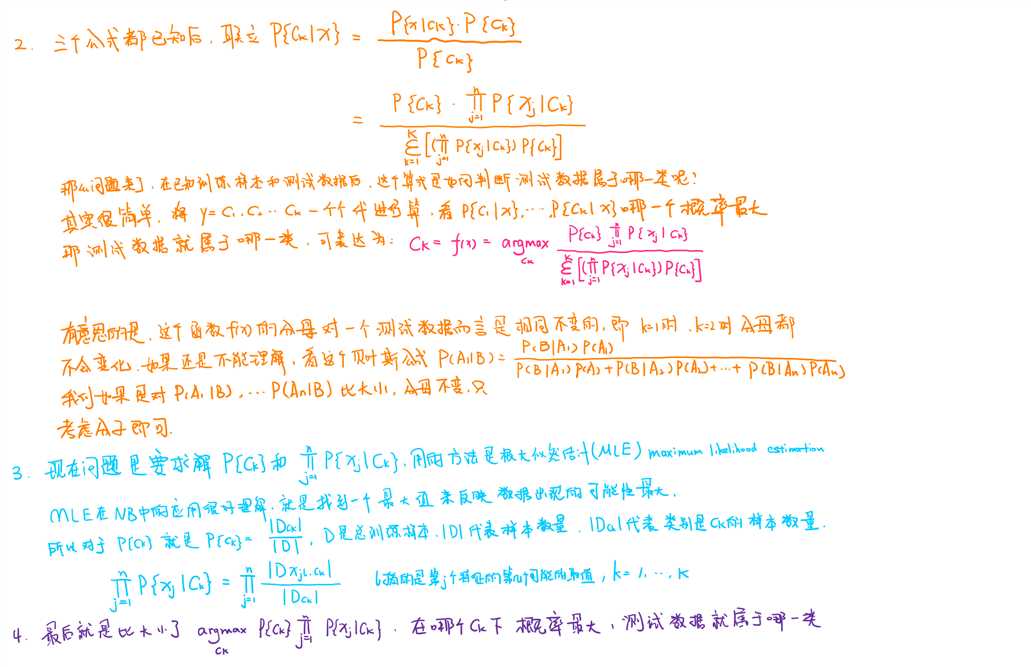 2. 三个公式都已知后，联立 P{Ck|X} = P{x|Ck}·P{Ck} / P{Ck}
= P{Ck}·∏_{j=1}^{n} P{Xj|Ck} / Σ_{k=1}^{K} [(∏_{j=1}^{n} P{xj|Ck}) P{Ck}]
那么问题来了，在已知训练样本和测试数据后，这个算式是如何判断测试数据属于哪一类呢？
其实很简单，将 y=C₁.C₂...Ck 一个个代进去算，看 P{C₁|x},...,P{Ck|x} 哪一个概率最大
那测试数据就属于哪一类，可表达为： Ck = f(x) = argmax_{Ck} P{Ck} ∏_{j=1}^{n} P{xj|Ck} / Σ_{k=1}^{K} [(∏_{j=1}^{n} P{xj|Ck}) P{Ck}]
有意思的是，这个函数f(x)的分母对一个测试数据而言是相同不变的，即 k=1时，k=2时 分母都
不会变化，如果还是不能理解，看这个贝叶斯公式 P(A₁|B) = P(B|A₁)P(A₁) / P(B|A₁)P(A₁)+P(B|A₂)P(A₂)+...+P(B|An)P(An)
我们如果是对 P(A₁|B), ... P(An|B) 比大小，分母不变，只
考虑分子即可.
3. 现在问题是要求解 P{Ck} 和 ∏_{j=1}^{n} P{xj|Ck}，用的方法是极大似然估计(MLE) maximum likelihood estimation
MLE在NB中的应用很好理解，就是找到一个最大值来反映数据出现的可能性最大，
所以对于 P(Ck) 就是 P{Ck} = |Dck| / |D|，D是总训练样本，|D|代表样本数量，|Dck|代表类别是Ck的样本数量.
∏_{j=1}^{n} P{xj|Ck} = ∏_{j=1}^{n} |Dxjl,ck| / |Dck| l指的是第j个特征的第l个可能的取值，k=1,...,K
4. 最后就是比大小了 argmax_{Ck} P{Ck} ∏_{j=1}^{n} P{xj|Ck}，在哪个Ck下概率最大，测试数据就属于哪一类